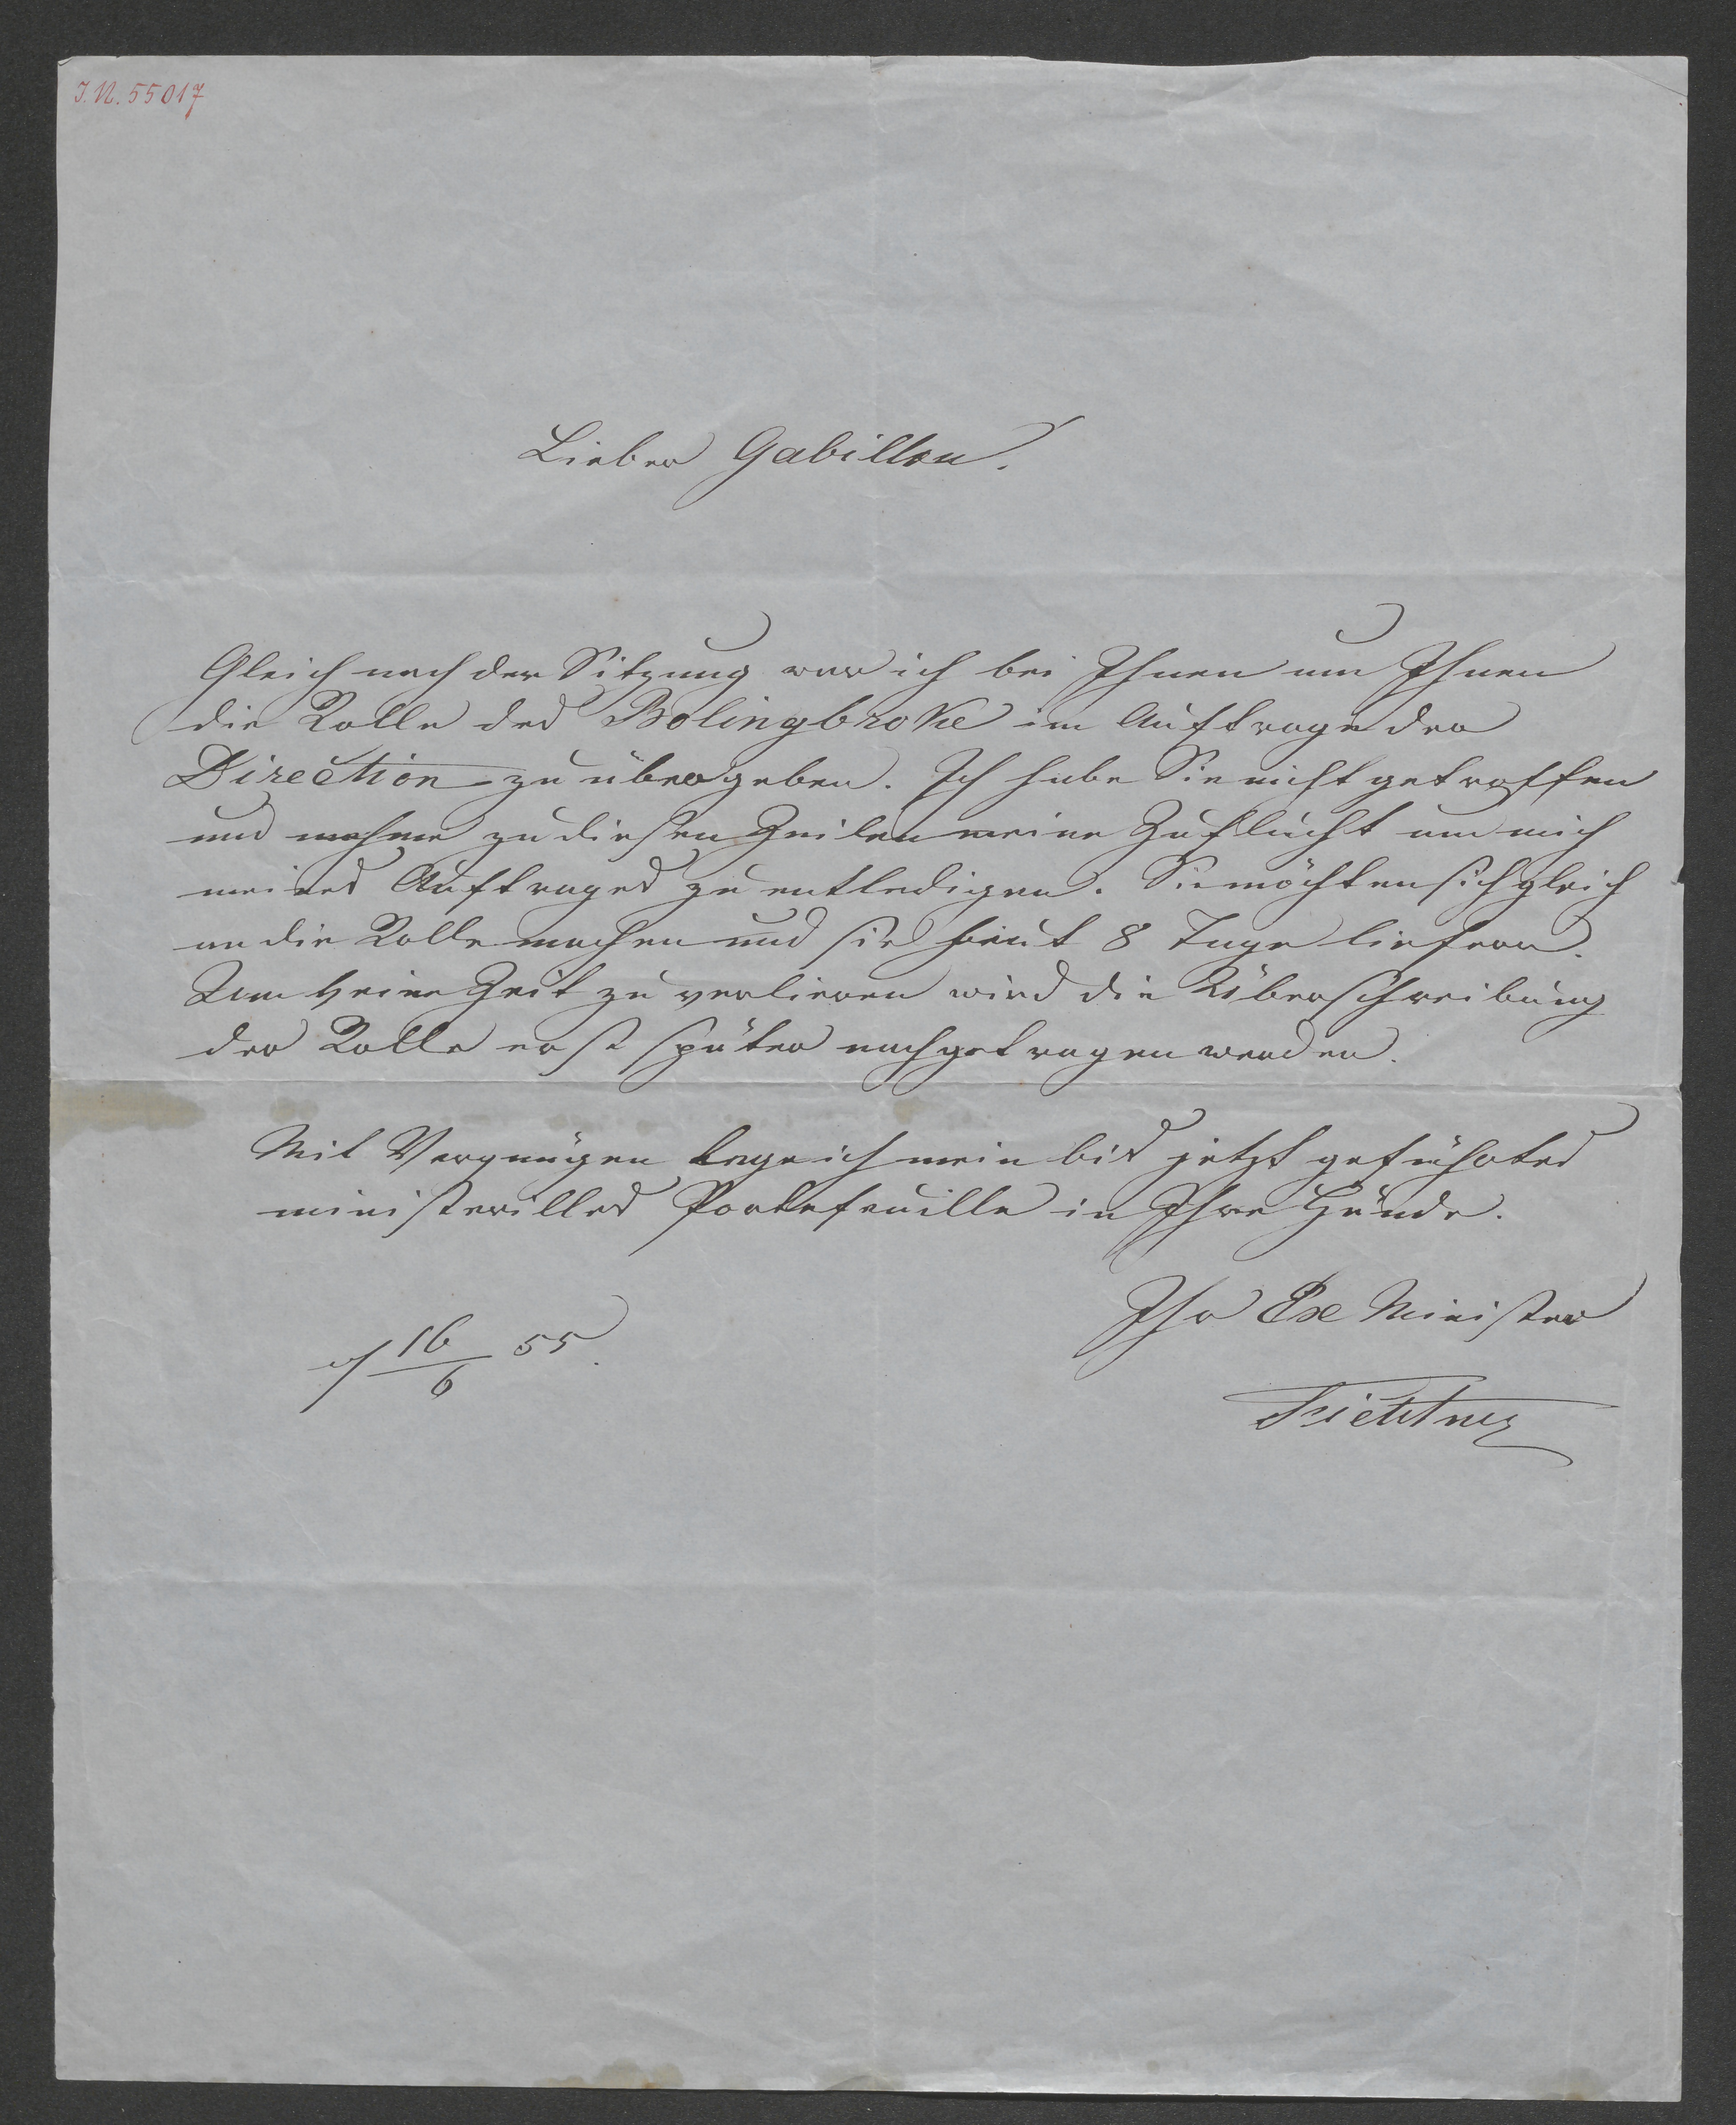 J.N. 55017
Lieber Gabillon!
Gleich nach der Sitzung war ich bei Ihnen um Ihnen
die Rolle des Bolingbroke im Auftrage der
Direction zu übergeben. Ich habe Sie nicht getroffen
und nehme zu diesen Zeilen meine Zuflucht um mich
meines Auftrages zu entledigen. Sie möchten sich gleich
an die Rolle machen und sie heut 8 Tage liefern.
Um keine Zeit zu verlieren wird die Überschreibung
der Rolle erst später nachgetragen werden.
Mit Vergnügen lege ich mein bis jetzt geführtes
ministerielles Portefeuille in Ihre Hände.
Ihr Exe Minister
16/6 55.
Fichtner